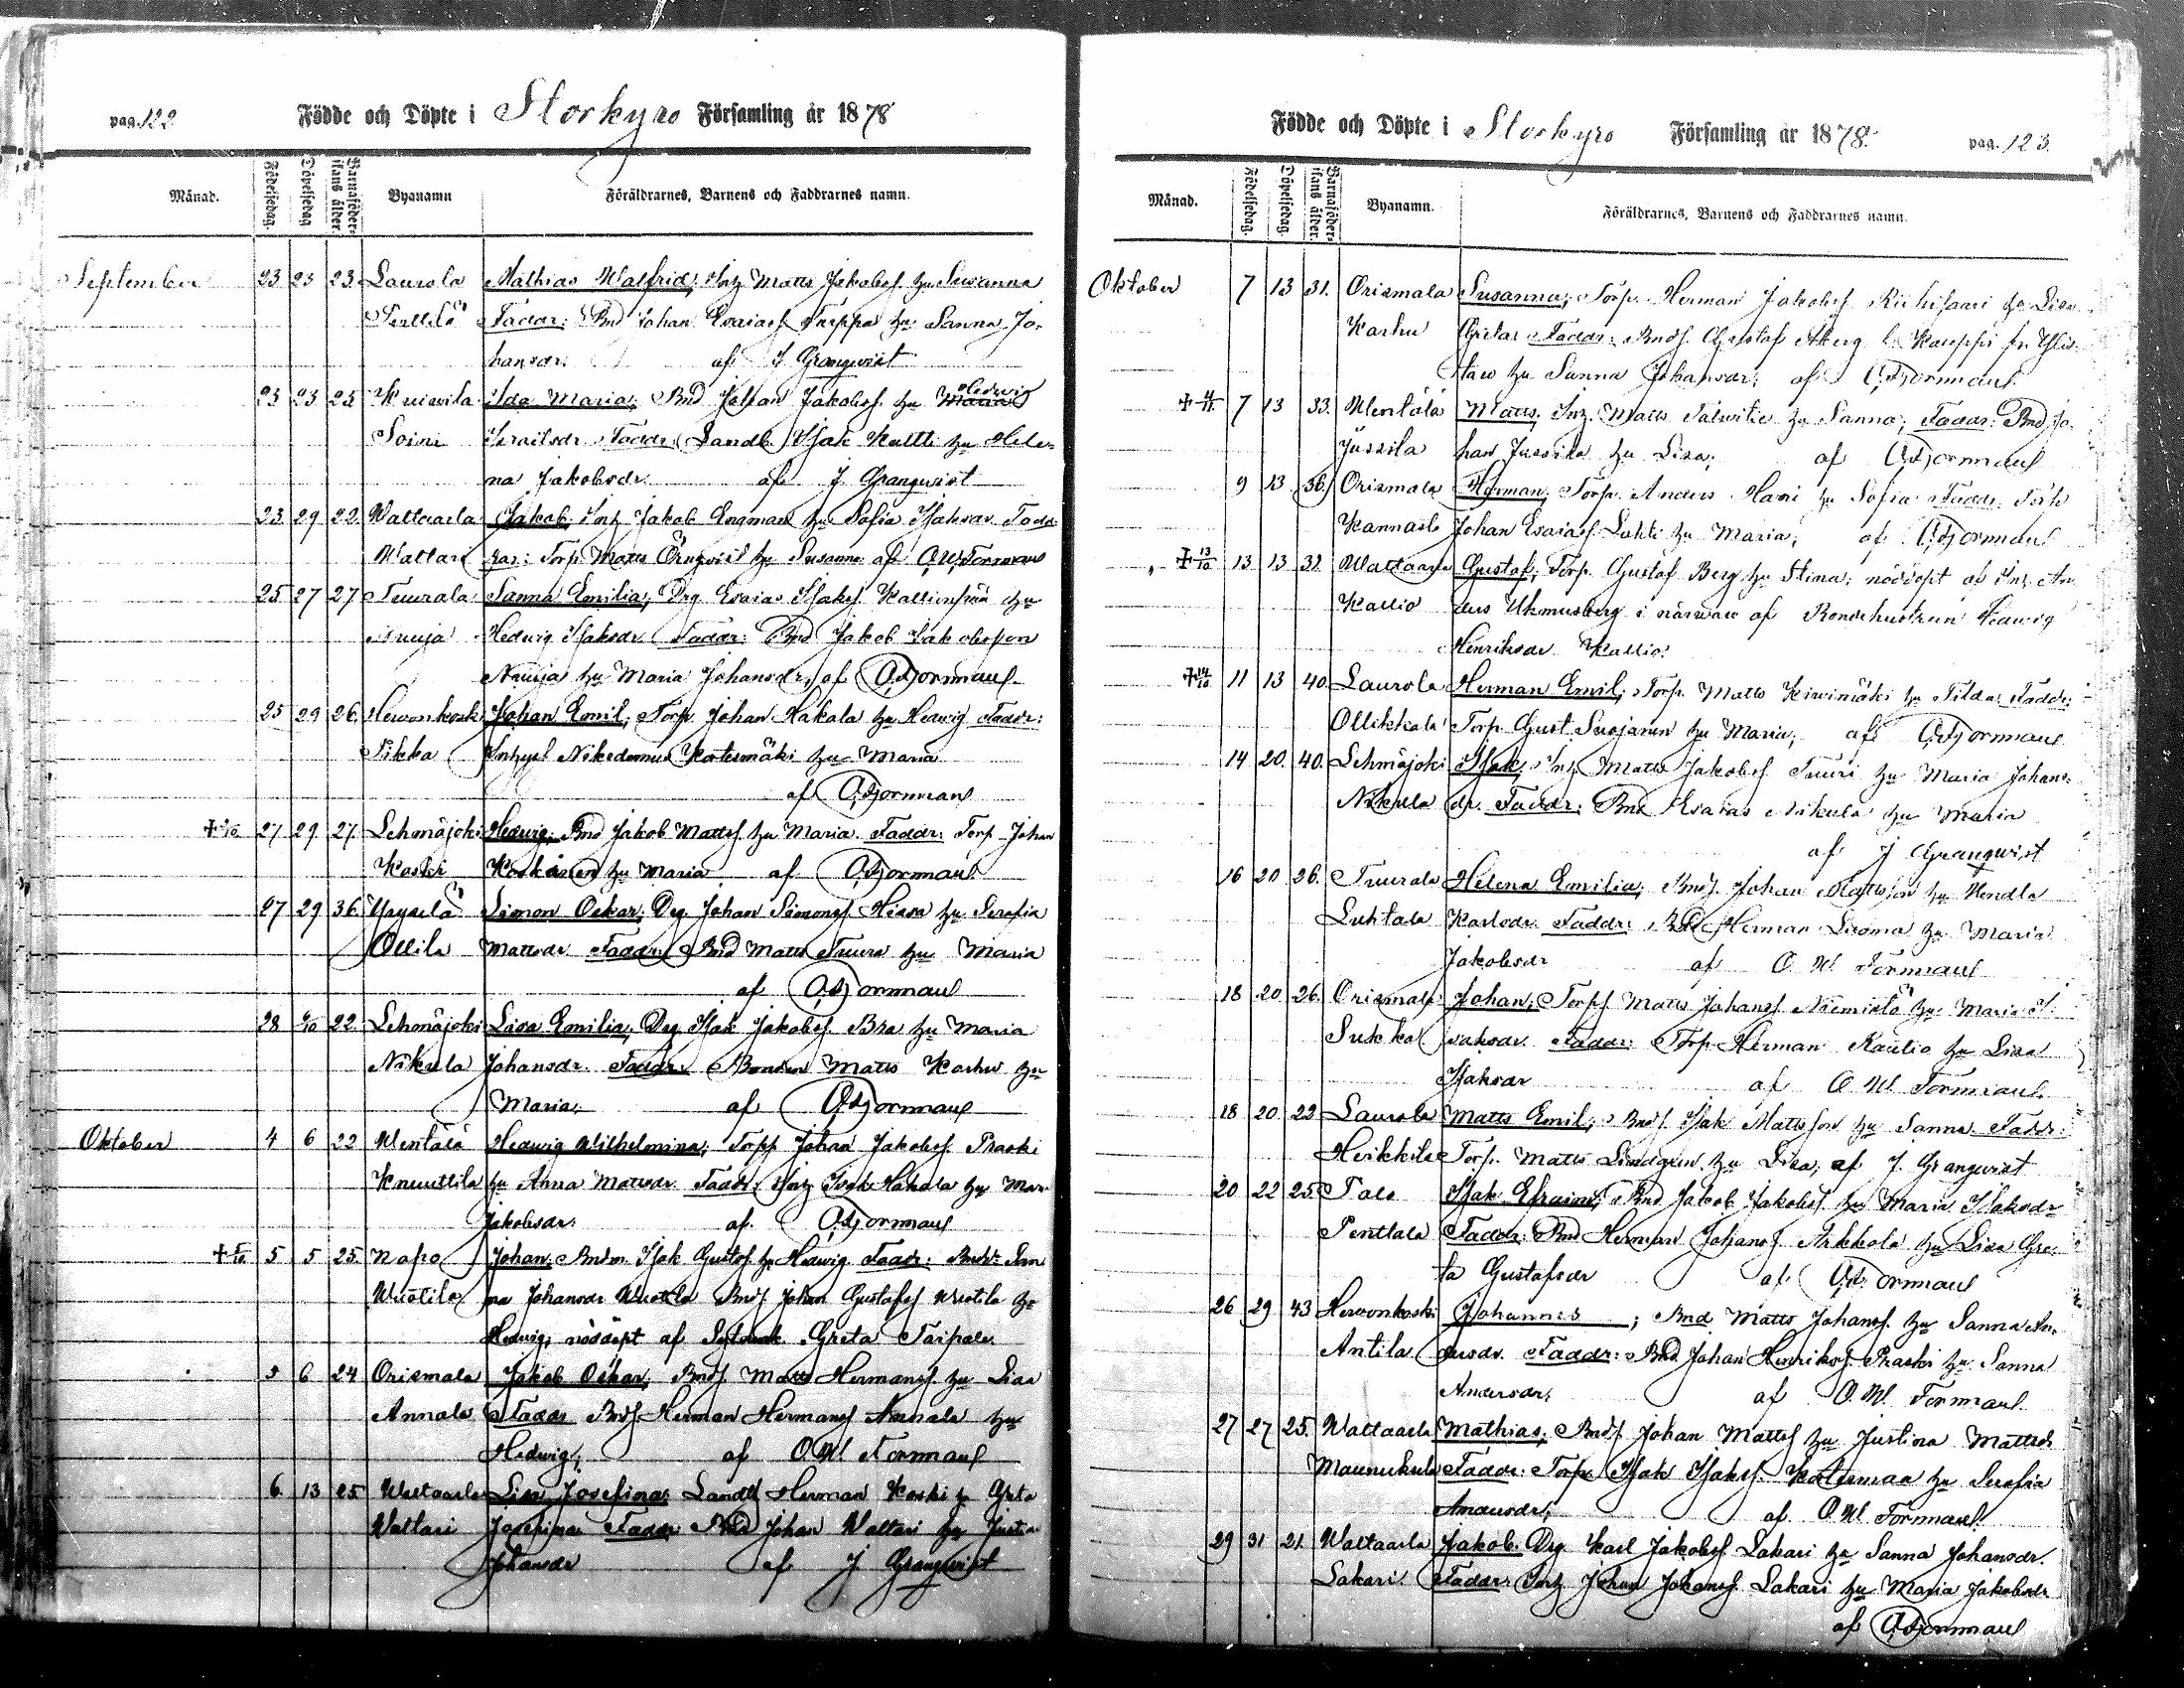 pag. 122
Födde och Döpte i Storkyro Församling år 1878
Månad. Födelsedag. Döpelsedag Barnaföderskans ålder. Byanamn Föräldrarnes, Barnens och Faddrarnes namn.
September 23 23 23 Laurola Mathias Walfrid; Inh Matts Jakobss. hu Susanna
Perttilä Faddr: Bnd Johan Esaiass hu Sanna Jo-
hansdr. af J Granqvist
23 23 25 Kuivila Ida Maria; Bnd Johan Jakobss. hu Hedvig
Soini Faddr: Landb. Isak hu Hele-
na Jakobsdr. af J. Granqvist
23 29 22 Waltaala Jakob; Inh Jakob Engman hu Sofia Isaksdr. Fadd-
Waltari rar: Torp. Matts Örnqvist hu Susanna af O.W. Forsman
25 27 27 Tuurala Sanna Emilia; Drg Esaias Isakss hu
Nuuja Hedvig Isaksdr. Faddr: Bnd Jakob Jakobsson
Nuuja hu Maria Johansdr; af O.W. Forsman
25 29 26 Hervonkoski Johan Emil; Torp. Johan Hakala hu Hedvig Faddr:
Pikka Inhyst Nikodemus hu Maria
af O.W. Forsman
27 29 27 Lehmäjoki Hedvig; Bnd Jakob Mattss. hu Maria. Faddr: Torp. Johan
Koski Koskinen hu Maria af O.W. Forsman
27 29 36 Ollila Simon Oskar; Drg. Johan Simonss. Hissa hu Serafia
Mattsdr. Faddr: Bnd Matts Tuura hu Maria
af O.W. Forsman
28 22 Lehmäjoki Lisa Emilia; Drg Isak Jakobss. Bra hu Maria
Nikula Johansdr. Faddr: Bonden Matts Karhu hu
Maria; af O.W. Forsman
Oktober 4 6 22 Wentälä Hedvig Wilhelmina; Torp Johan Jakobss. Praski
Knuuttila hu Anna Mattsdr. Faddr: Inh Isak Hakala hu Mar-
Jakobsdr. af O.W. Forsman
5 5 25 Napo Johan; Isak Gustafss hu Hedvig Faddr:
Wuotila na Johansdr Wuotila Bnds Johan Gustafss Wuotila hu
Hedvig; nöddöpt af Greta Taipale.
5 6 24 Orismala Jakob Oskar; Bnds Matts Hermanss. hu Lisa
Annala Faddr Bnds Herman Hermanss Annala hu
Hedvig; af O.W. Forsman
6 13 25 Waltaala Lisa Josefina; Landb Herman Koski hu Greta
Waltari Josefina Faddr Bnd Johan Waltari hu Justina
Johansdr af J Granqvist
Födde och Döpte i Storkyro Församling år 1878. pag. 123.
Månad. Födelsedag. Döpelsedag Barnaföderskans ålder. Byanamn. Föräldrarnes, Barnens och Faddrarnes namn.
Oktober 7 13 31. Orismala Susanna; Torp. Herman Jakobss hu Lisa
Karhu Greta Faddr: Bnds. Gustaf Kauppi fr. Ylis-
taro hu Sanna Johansdr; af O.W. Forsman
7 13 33. Wentälä Matts, Inh. Matts Talvitie hu Sanna; Faddr: Bnd Jo-
Jussila han Jussila hu Lisa; af O.W. Forsman
9 13 36. Orismala Herman; Torp. Anders Hani hu Sofia Faddr:
Johan Esaiass. Lahti hu Maria; af O.W. Forsman
13/10 13 13 Waltaala Gustaf; Torp. Gustaf Berg hu Stina; nöddöpt af Inh. An-
Kallio ders i närvaro af Bondehustrun Hedvig
Henriksdr Kallio.
14/10 11 13 40. Laurola Herman Emil; Torp. Matts Kivimäki hu Tilda Faddr:
Ollikkala Torp. Gust. Suojanen hu Maria; af O.W. Forsman
14 20. 40. Lehmäjoki Isak; Inh Matts Jakobss Tuuri hu Maria Johans-
Nikula dr. Faddr: Bnd Esaias Nikula hu Maria
af J Granqvist
16 20 26. Tuurala Helena Emilia; Bnds. Johan Mattsson hu Hendla
Luhtala Karlsdr. Faddr: Bnd Herman Luoma hu Maria
Jakobsdr af O. W. Forsman
18 20 26. Orismala Johan; Torps Matts Johanss Niemistö hu Maria I-
Sukka saksdr. Faddr: Torp. Herman Raulio hu Lisa
Isaksdr af O W. Forsman.
18 20 22 Laurola Matts Emil; Bnds. Isak Mattsson hu Sanna Faddr:
Heikkilä Torp. Matts Lindgren hu Lisa; af J. Granqvist
20 22 25 Palo Isak Efraim; Bnd Jakob Jakobss hu Maria Isaksdr
Penttala Faddr: Bnd Herman Johanss Arkkola hu Lisa Gre-
ta Gustafsdr af O.W. Forsman
26 29 43 Hervonkoski Johannes; Bnd Matts Johanss. hu Sanna An-
Antila dersdr. Faddr: Bnd Johan Henrikss. Praski hu Sanna
Andersdr; af O.W. Forsman.
27 27 25. Waltaala Mathias; Bnds Johan Mattss hu Justina Mattsdr
Maunukula Faddr: Torp. Isak Isakss. hu Serafia
Andersdr; af O.W. Forsman.
29 31 21. Waltaala Jakob. Drg Karl Jakobss Lakari hu Sanna Johansdr.
Lakari. Faddr: Inh Johan Johanss. Lakari hu Maria Jakobsdr
af O.W. Forsman